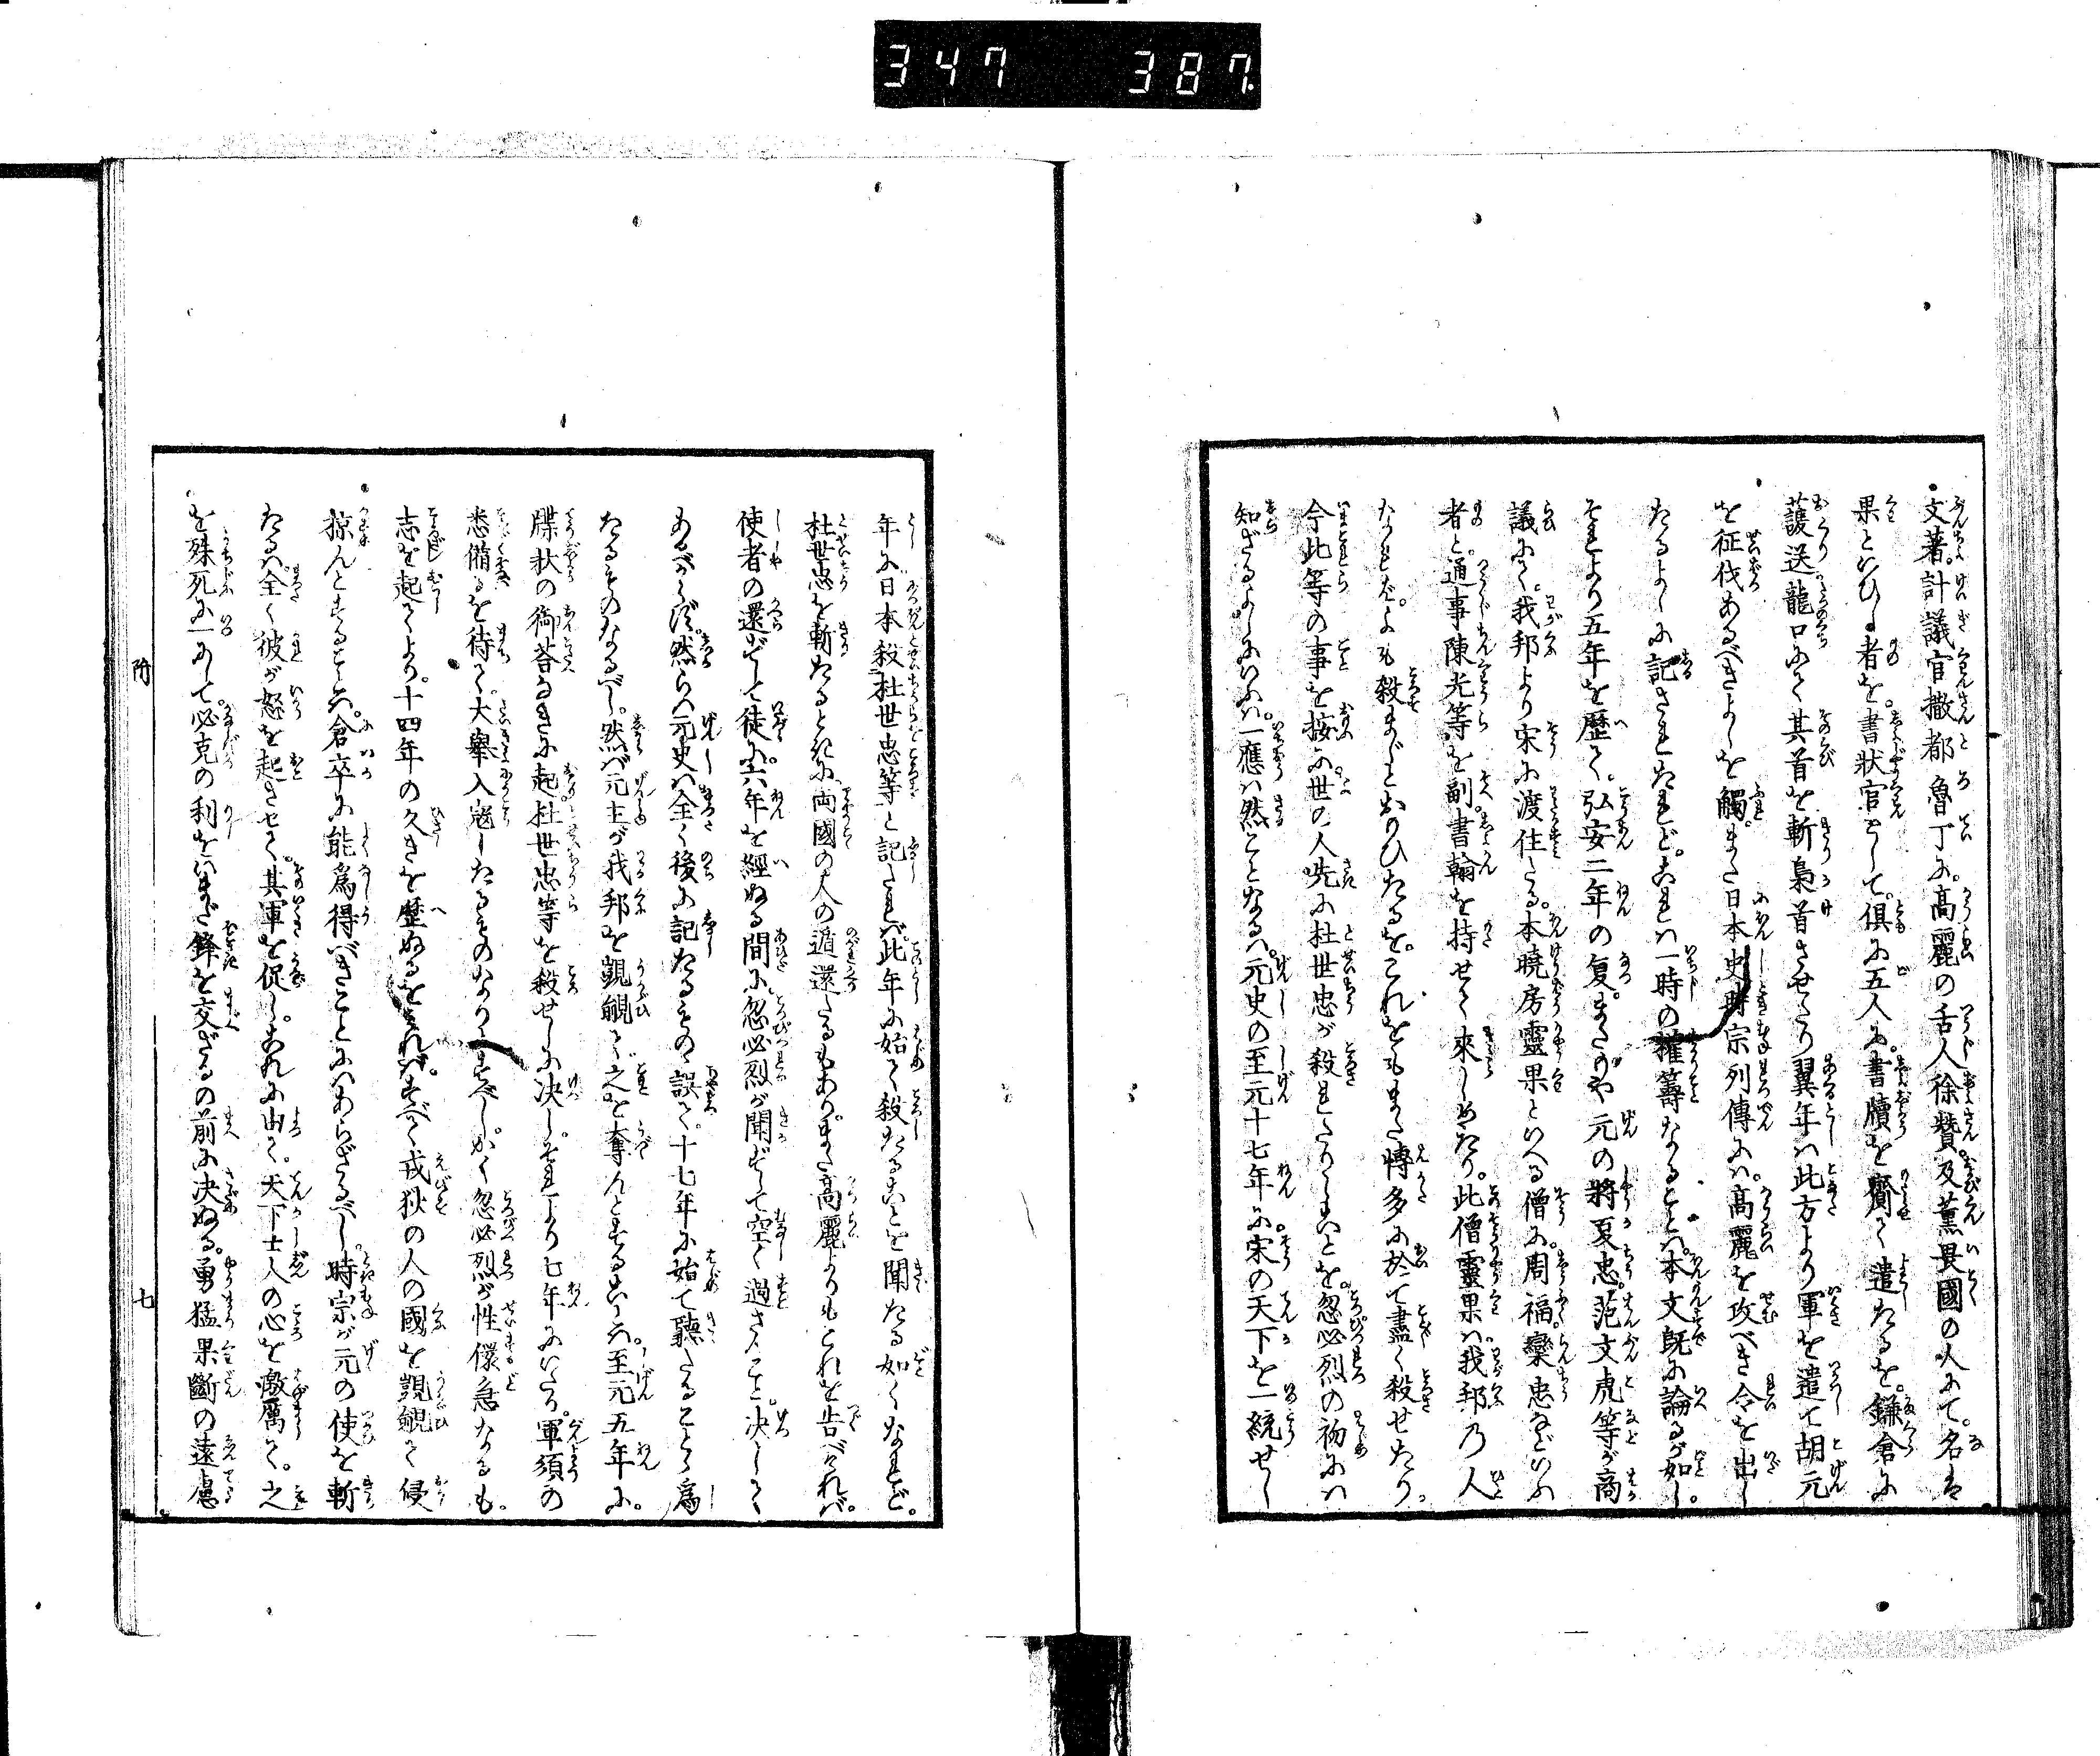 347 387
文著。計議官撒都魯丁に。高麗の舌人徐賛。及薫畏國の人にて。名は
果といひし者を。書状官として。倶に五人に。書牘を齎て遣たるを。鎌倉に
護送龍口にて其首を斬梟首させたり翼年は此方より軍を遣て胡元
を征伐あるべきよしを觸。また日本史時宗列傳には。高麗を攻べき令を出し
たるよしに記されたれど。これは一時の權籌なること。本文既に論るが如し。
それより五年を歴て。弘安二年の夏。またもや元の將夏忠。范文虎等が商
議にて。我邦より宋に渡住たる。本曉房靈果といへる僧に。周福。欒忠などいふ
者と。通事陳光等を副。書翰を持せて來しめたり。此僧靈果は我邦乃人
なれば。よも殺まじとおもひたるを。これをもまた愽多に於て盡く殺せたり。
今此等の事を按に。世の人唯に杜世忠が殺れたりしことを。忽必烈の初には
知ざるよしにいふは。一應は然ことなるは。元史の至元十七年に。宋の天下を一統せし
年に日本殺杜世忠等と記したれば此年に始て殺たることを聞たる如くなれど。
杜世忠を斬たるときに。両國の人の遁還たるもあり。また高麗よりもこれを告ざれば。
使者の還ずして徒に六年を經ぬる間に。忽必烈が聞ずして空く過さんこと。决してく
あるべからず。然らば元史は全く後に記たるものゝ誤て。十七年に始て聽たることゝ爲
たるものなるべし。然ば元主が我邦を覬覦て之を奪んとするこゝろは。至元五年に。
牒状の御荅なきに起。杜世忠等を殺せしに决し。それより七年にいたり。軍須の
悉備るを待て。大擧入冦したるものなりとすべし。かく忽必烈が性儇急なるも。
志を起てより。十四年の久きを歴ぬるをみれば。すべて戎狄の人の國を覬覦て侵
掠んとするには。倉卒に能爲得べきことにはあらざるべし。時宗が元の使を斬
たるは。全く彼が怒を起させて。其軍を促し。これに由て。天下士人の心を激厲て。之
を殊死に一にして。必克の利をいまだ鋒を交ざるの前に决ぬる。勇猛果斷の遠慮
附
七